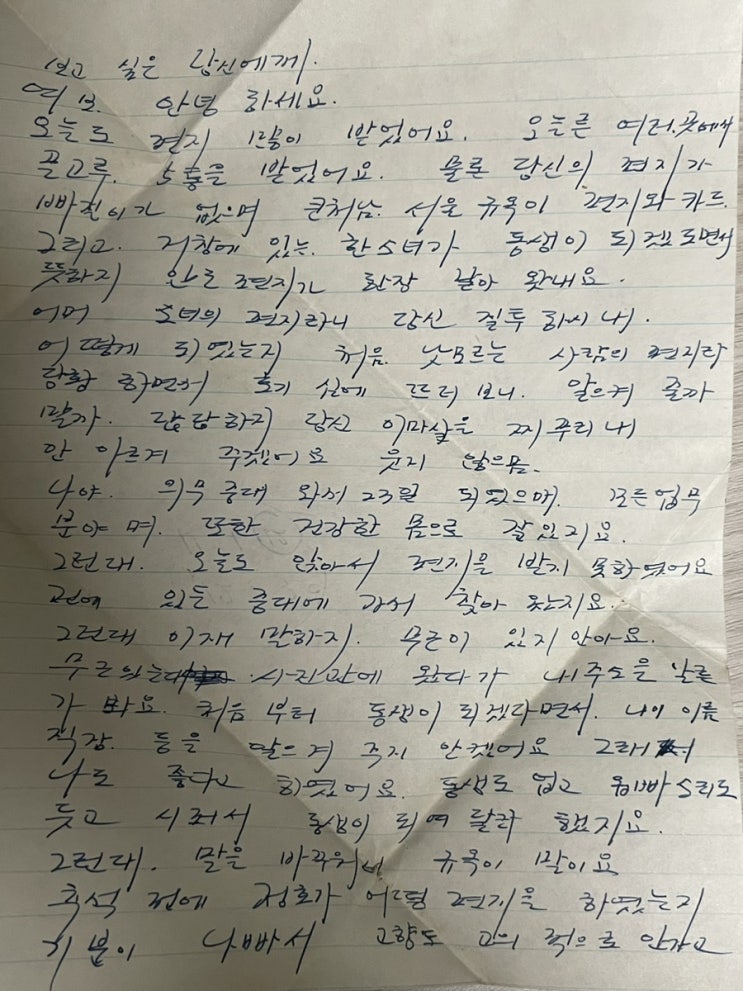 보고 싶은 당신에게.
여보. 안녕 하세요.
오늘도 편지 많이 받었어요. 오늘른 여러곳에서
골고루. 5통을 받었어요. 물론 당신의 편지가
빠진이가 없으며 큰처남. 서울 규옥이 편지와 카드.
그리고. 거창에 있는. 한소녀가 동생이 되겠도면서
뜻하지 안는 편지가 한장 날아 왔내요.
어머 소녀의 편지라니 당신 질투 하시나.
어떻게 되였는지 처음 낫모르는 사람의 편지라
당황 하면서 호기 심에 뜨더 보니. 알으켜 줄까
말까. 답답하지 당신 이마살을 찌푸리내
안 아르켜 주겠어요 웃지 않으몸.
나야. 의무중대 와서 23일 되였으며. 모든업무
분야 며. 또한 건강한 몸으로 잘있지요.
그런대. 오늘도 앉아서 편지을 받지 못하였어요
전에 있든 중대에 가서 찾아 왔지요.
그런대 이재 말하지. 무른이 있지 안아요.
무른있는대 사진관에 왔다가 내주소을 알른
가 봐요. 처음 부터 동생이 되겠다면서. 나이 이름
직장. 등을 알으켜 주지 안켔어요 그래서
나도 좋다고 하였어요. 동생도 업고 옵빠소리도
듯고 시퍼서 동생이 되여 달라 했지요.
그런대. 말을 바꾸워서 규옥이 말이요
추석 전에 정호가 어떵 편지을 하였는지
기분이 나빠서 고향도 고의 적으로 안가고